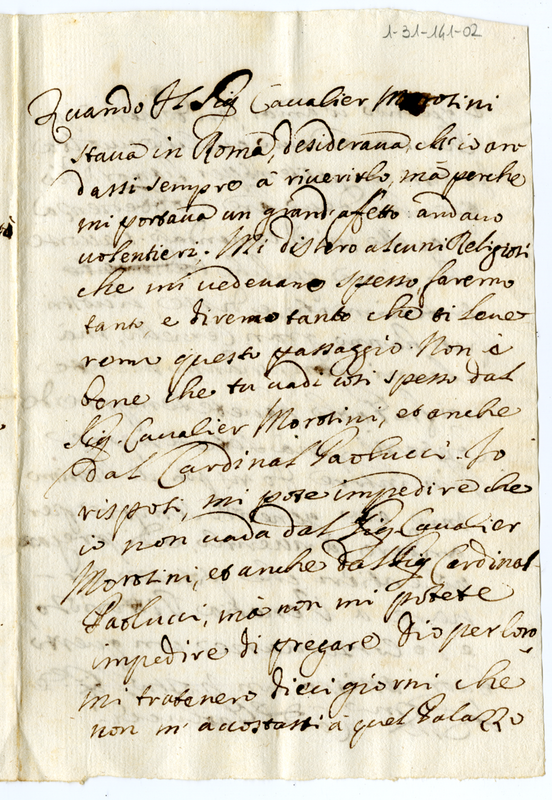 1-31-141-02
Quando Il Sig Cavalier Morosini
stava in Roma, desiderava, ch'io an
dassi sempre à riverirlo, mà perche
mi portava un grand'afetto andavo
volentieri. Mi dissero alcuni Religiosi
che mi vedevano spesso, faremo
tanto e diremo tanto che ti leve
remo questo passaggio. Non è
bene che tu vadi così spesso dal
Sig. Cavalier Morosini, et anche
dal Cardinal Paolucci. Io
risposi, mi pote impedire che
io non vada dal Sig Cavalier
Morosini, et anche dal Sig Cardinal
Paolucci, mà non mi potete
impedire di pregare Dio per loro
mi tratenero dieci giorni che
non m'accostassi à quel Palazzo